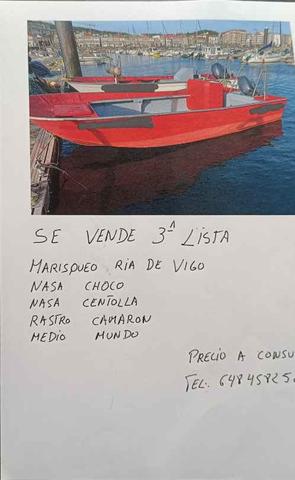 SE VENDE 3ª LISTA
MARISQUEO RIA DE VIGO
NASA CHOCO
NASA CENTOLLA
RASTRO CAMARON
MEDIO MUNDO
PRECIO A CONSU
TEL:. 6484582